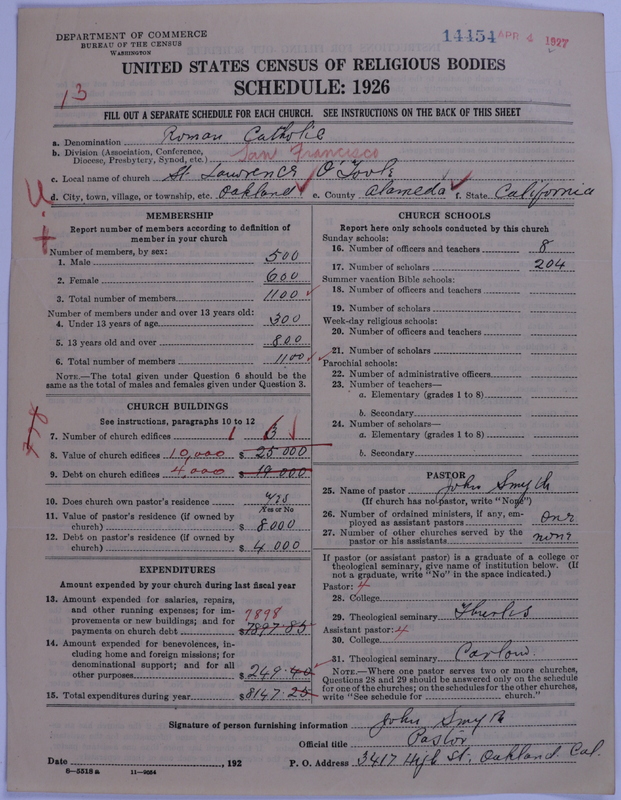 DEPARTMENT OF COMMERCE
BUREAU OF THE CENSUS
WASHINGTON
14454 APR 4 1927
UNITED STATES CENSUS OF RELIGIOUS BODIES
SCHEDULE: 1926
13
FILL OUT A SEPARATE SCHEDULE FOR EACH CHURCH. SEE INSTRUCTIONS ON THE BACK OF THIS SHEET
a. Denomination Roman Catholic
b. Division (Association, Conference, Diocese, Presbytery, Synod, etc.) San Francisco
c. Local name of church St Lawrence O'Toole
d. City, town, village, or township, etc. Oakland e. County Alameda f. State California
MEMBERSHIP
Report number of members according to definition of member in your church
Number of members, by sex:
1. Male 500
2. Female 600
3. Total number of members 1100
Number of members under and over 13 years old:
4. Under 13 years of age 300
5. 13 years old and over 800
6. Total number of members 1100
NOTE.—The total given under Question 6 should be the same as the total of males and females given under Question 3.
CHURCH BUILDINGS
See instructions, paragraphs 10 to 12
7. Number of church edifices 1 3
8. Value of church edifices 10,000 $ 25 000
9. Debt on church edifices 4,000 $ 19 000
10. Does church own pastor's residence yes
Yes or No
11. Value of pastor's residence (if owned by church) $ 8000
12. Debt on pastor's residence (if owned by church) $ 4 000
EXPENDITURES
Amount expended by your church during last fiscal year
13. Amount expended for salaries, repairs, and other running expenses; for improvements or new buildings; and for payments on church debt 7898 $7897.85
14. Amount expended for benevolences, including home and foreign missions; for denominational support; and for all other purposes $249.40
15. Total expenditures during year $8147.25
CHURCH SCHOOLS
Report here only schools conducted by this church
Sunday schools:
16. Number of officers and teachers 8
17. Number of scholars 204
Summer vacation Bible schools:
18. Number of officers and teachers
19. Number of scholars
Week-day religious schools:
20. Number of officers and teachers
21. Number of scholars
Parochial schools:
22. Number of administrative officers
23. Number of teachers—
a. Elementary (grades 1 to 8)
b. Secondary
24. Number of scholars—
a. Elementary (grades 1 to 8)
b. Secondary
PASTOR
25. Name of pastor John Smyth
(If church has no pastor, write "None")
26. Number of ordained ministers, if any, employed as assistant pastors one
27. Number of other churches served by the pastor or his assistants none
If pastor (or assistant pastor) is a graduate of a college or theological seminary, give name of institution below. (If not a graduate, write "No" in the space indicated.)
Pastor: 4
28. College
29. Theological seminary Thurles
Assistant pastor: 4
30. College
31. Theological seminary Carlow.
NOTE.—Where one pastor serves two or more churches, Questions 28 and 29 should be answered only on the schedule for one of the churches; on the schedules for the other churches, write "See schedule for church."
Signature of person furnishing information John Smyth
Official title Pastor
Date , 192 P. O. Address 3417 High St. Oakland Cal.
8—5518a 11—9054